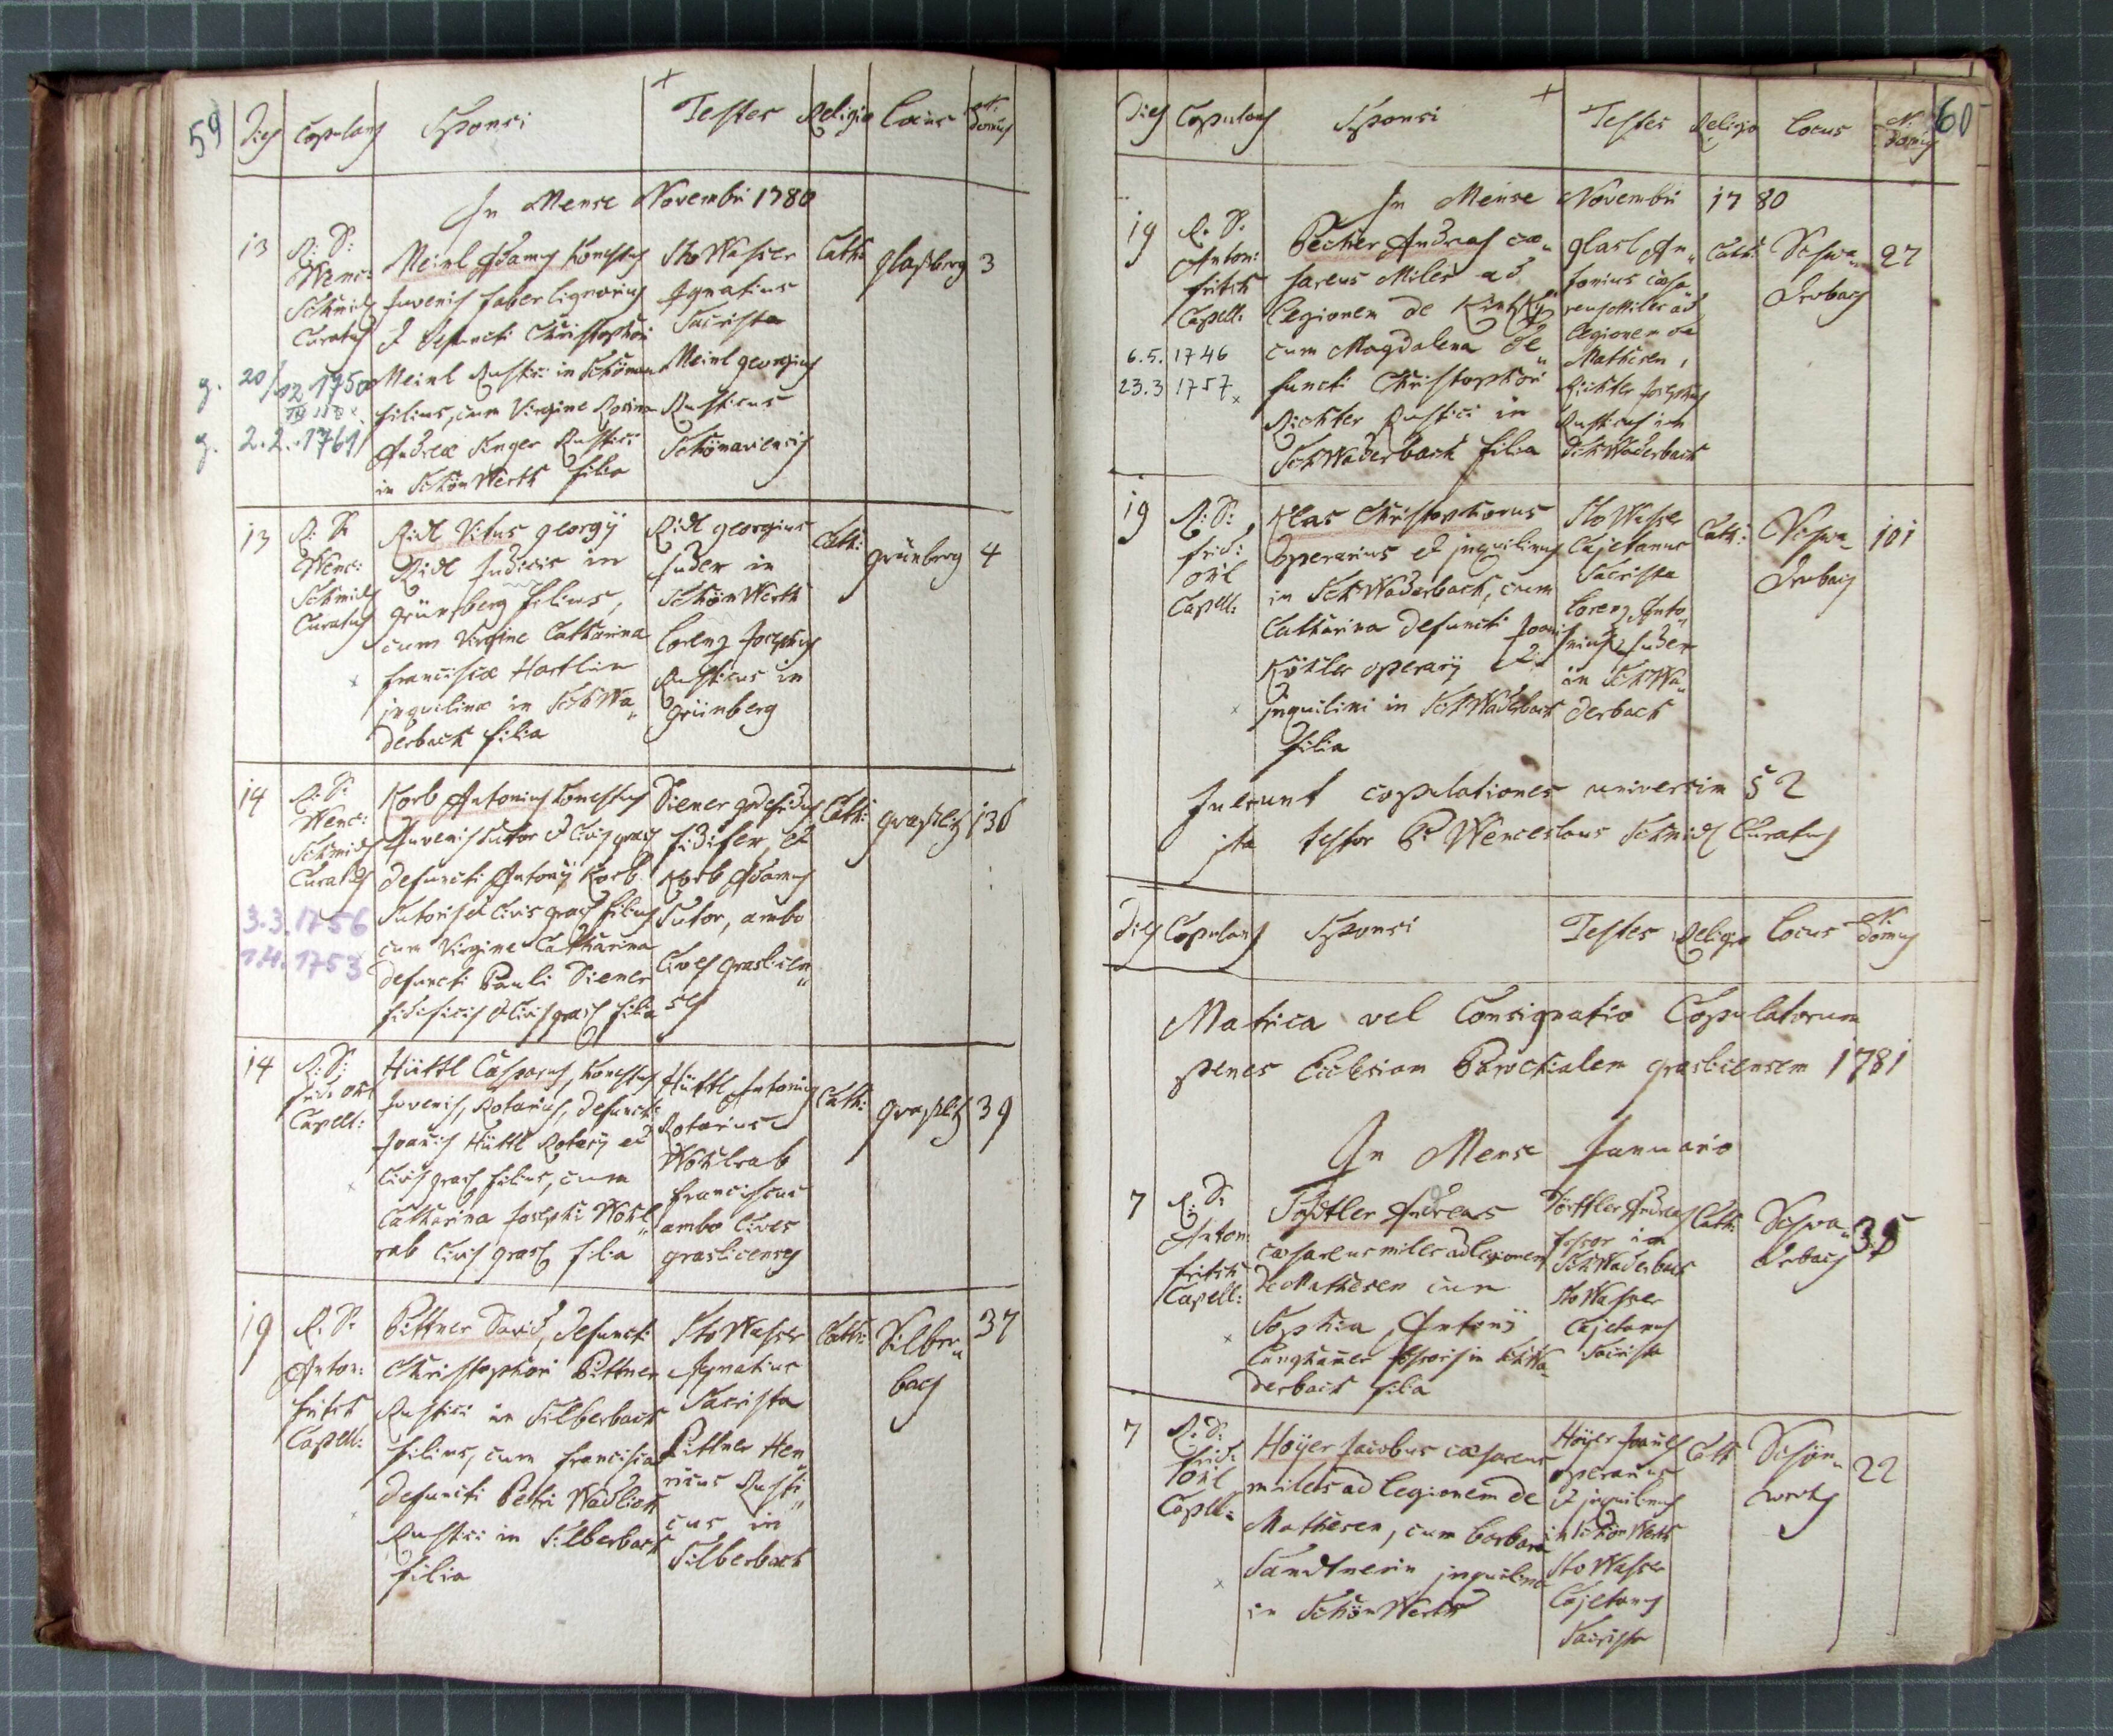 59
Dies Copulans Sponsi Testes Religio Locus N. Domus
In Mense Novembri 1780
13 R: D: Wenc: Schmid Curatus
Meinl Adamus honestus
Juvenis faber lignarius
et defuncti Christophori
Meinl Rustici in Schönau
filius, cum Virgine Rosina
Andreæ Unger Rustici
in SchönWerth filia
StoWasser
Ignatius
Sacrista
Meinl georgius
Rusticus
Schönaviensis
Cath: glaßberg 3
g. 20/12 1750
g. 2.2.1761
13 R: D: Wenc: Schmid Curatus
Ridl Vitus georgÿ
Ridl Judicis in
grünberg filius,
cum Virgine Catharina
franciscæ Hartlin
inquilinæ in SchWa„
derbach filia
Ridl georgius
Judex in
SchönWerth
Lorenz Josephus
Rusticus in
grünberg
Cath: grünberg 4
14 R: D: Wenc: Schmid Curatus
Korb Antonius honestus
Juvenis Sutor et Civis gras
defuncti Antonÿ Korb
Sutoris et Civis gras filius
cum Virgine Catharina
defuncti Pauli Diener
fidificis et Civis gras filia
Diener
fidifex, et
Korb Adamus
Sutor, ambo
Cives graslicen„
ses
Cath: graßlitz 136
3.3.1756
1.4.1753
14 R: D: frid: Ohl Capell:
Hüttl Casparus, honestus
Juvenis, Rotarius, defuncti
Joannis Hüttl Rotarÿ et
Civis gras filius, cum
Catharina Josephi Wohl„
rab Civis gras filia
Hüttl Antonius
Rotarius
Wohlrab
franciscus
ambo Cives
graslicenses
Cath: graßlitz 39
19 R: D: Anton: fritsch Capell:
Pittner David, defuncti
Christophori Pittner
Rustici in Silberbach
filius, cum francisca
defuncti Petri Wadlich
Rustici in Silberbach
filia
StoWasser
Ignatius
Sacrista
Pittner Hen„
ricus Rusti„
cus in
Silberbach
Cath: Silber„
bach
37
60
Dies Copulans Sponsi Testes Religio Locus N. Domus
In Mense Novembri 1780
19 R: D: Anton: fritsch Capell:
Pecher Andreas cæ„
sareus Miles ad
Legionem de Kinsky
cum Magdalena de„
functi Christophori
Richter Rustici in
SchWaderbach filia
glasl An„
tonius cæsa„
reus Miles ad
Legionem de
Mathesen,
Richter Josephus
Rusticus in
SchWaderbach
Cath: Schwa„
derbach
27
6.5.1746
23.3 1757
19 R: D: frid: Ohl Capell:
Klas Christophorus
operarius et inquilinus
in SchWaderbach, cum
Catharina defuncti Joannis
Köhler operarÿ et
inquilini in SchWaderbach
filia
StoWasser
Cajetanus
Sacrista
Lorenz Anto„
nius Judex
in SchWa„
derbach
Cath: Schwa„
derbach
101
Fuerunt copulationes universim 52
ita testor P. Wenceslaus Schmid Curatus
Dies Copulans Sponsi Testes Religio Locus N. Domus
Matrica vel Consignatio Copulatorum
penes Ecclesiam Parochialem graslicensem 1781
In Mense Januario
7 R: D: Anton: fritsch Capell:
Andreas
cæsareus miles ad legionem
de Mathesen cum
Sophia, Antonÿ
Langhamer fossoris in SchWa„
derbach filia
Andreas
fossor in
SchWaderbach
StoWasser
Cajetanus
Sacrista
Cath: Schwa„
derbach
35
7 R: D: frid: Ohl Capell:
Hoÿer Jacobus cæsareus
miles ad legionem de
Mathesen, cum barbara
Sandtnerin inquilina
in SchönWerth
Hoÿer Joannes
operarius
et inquilinus
in SchönWerth
StoWasser
Cajetanus
Sacrista
Cath Schön„
werth
22